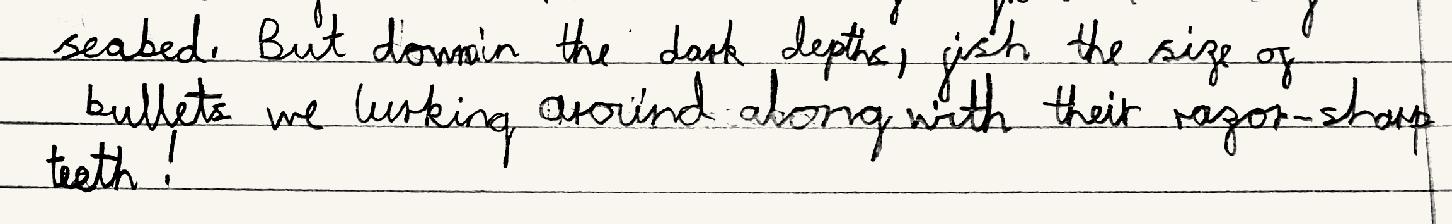 seabed. But down in the dark depths, fish the size of
bullets we lurking around along with their razor-sharp
teeth!